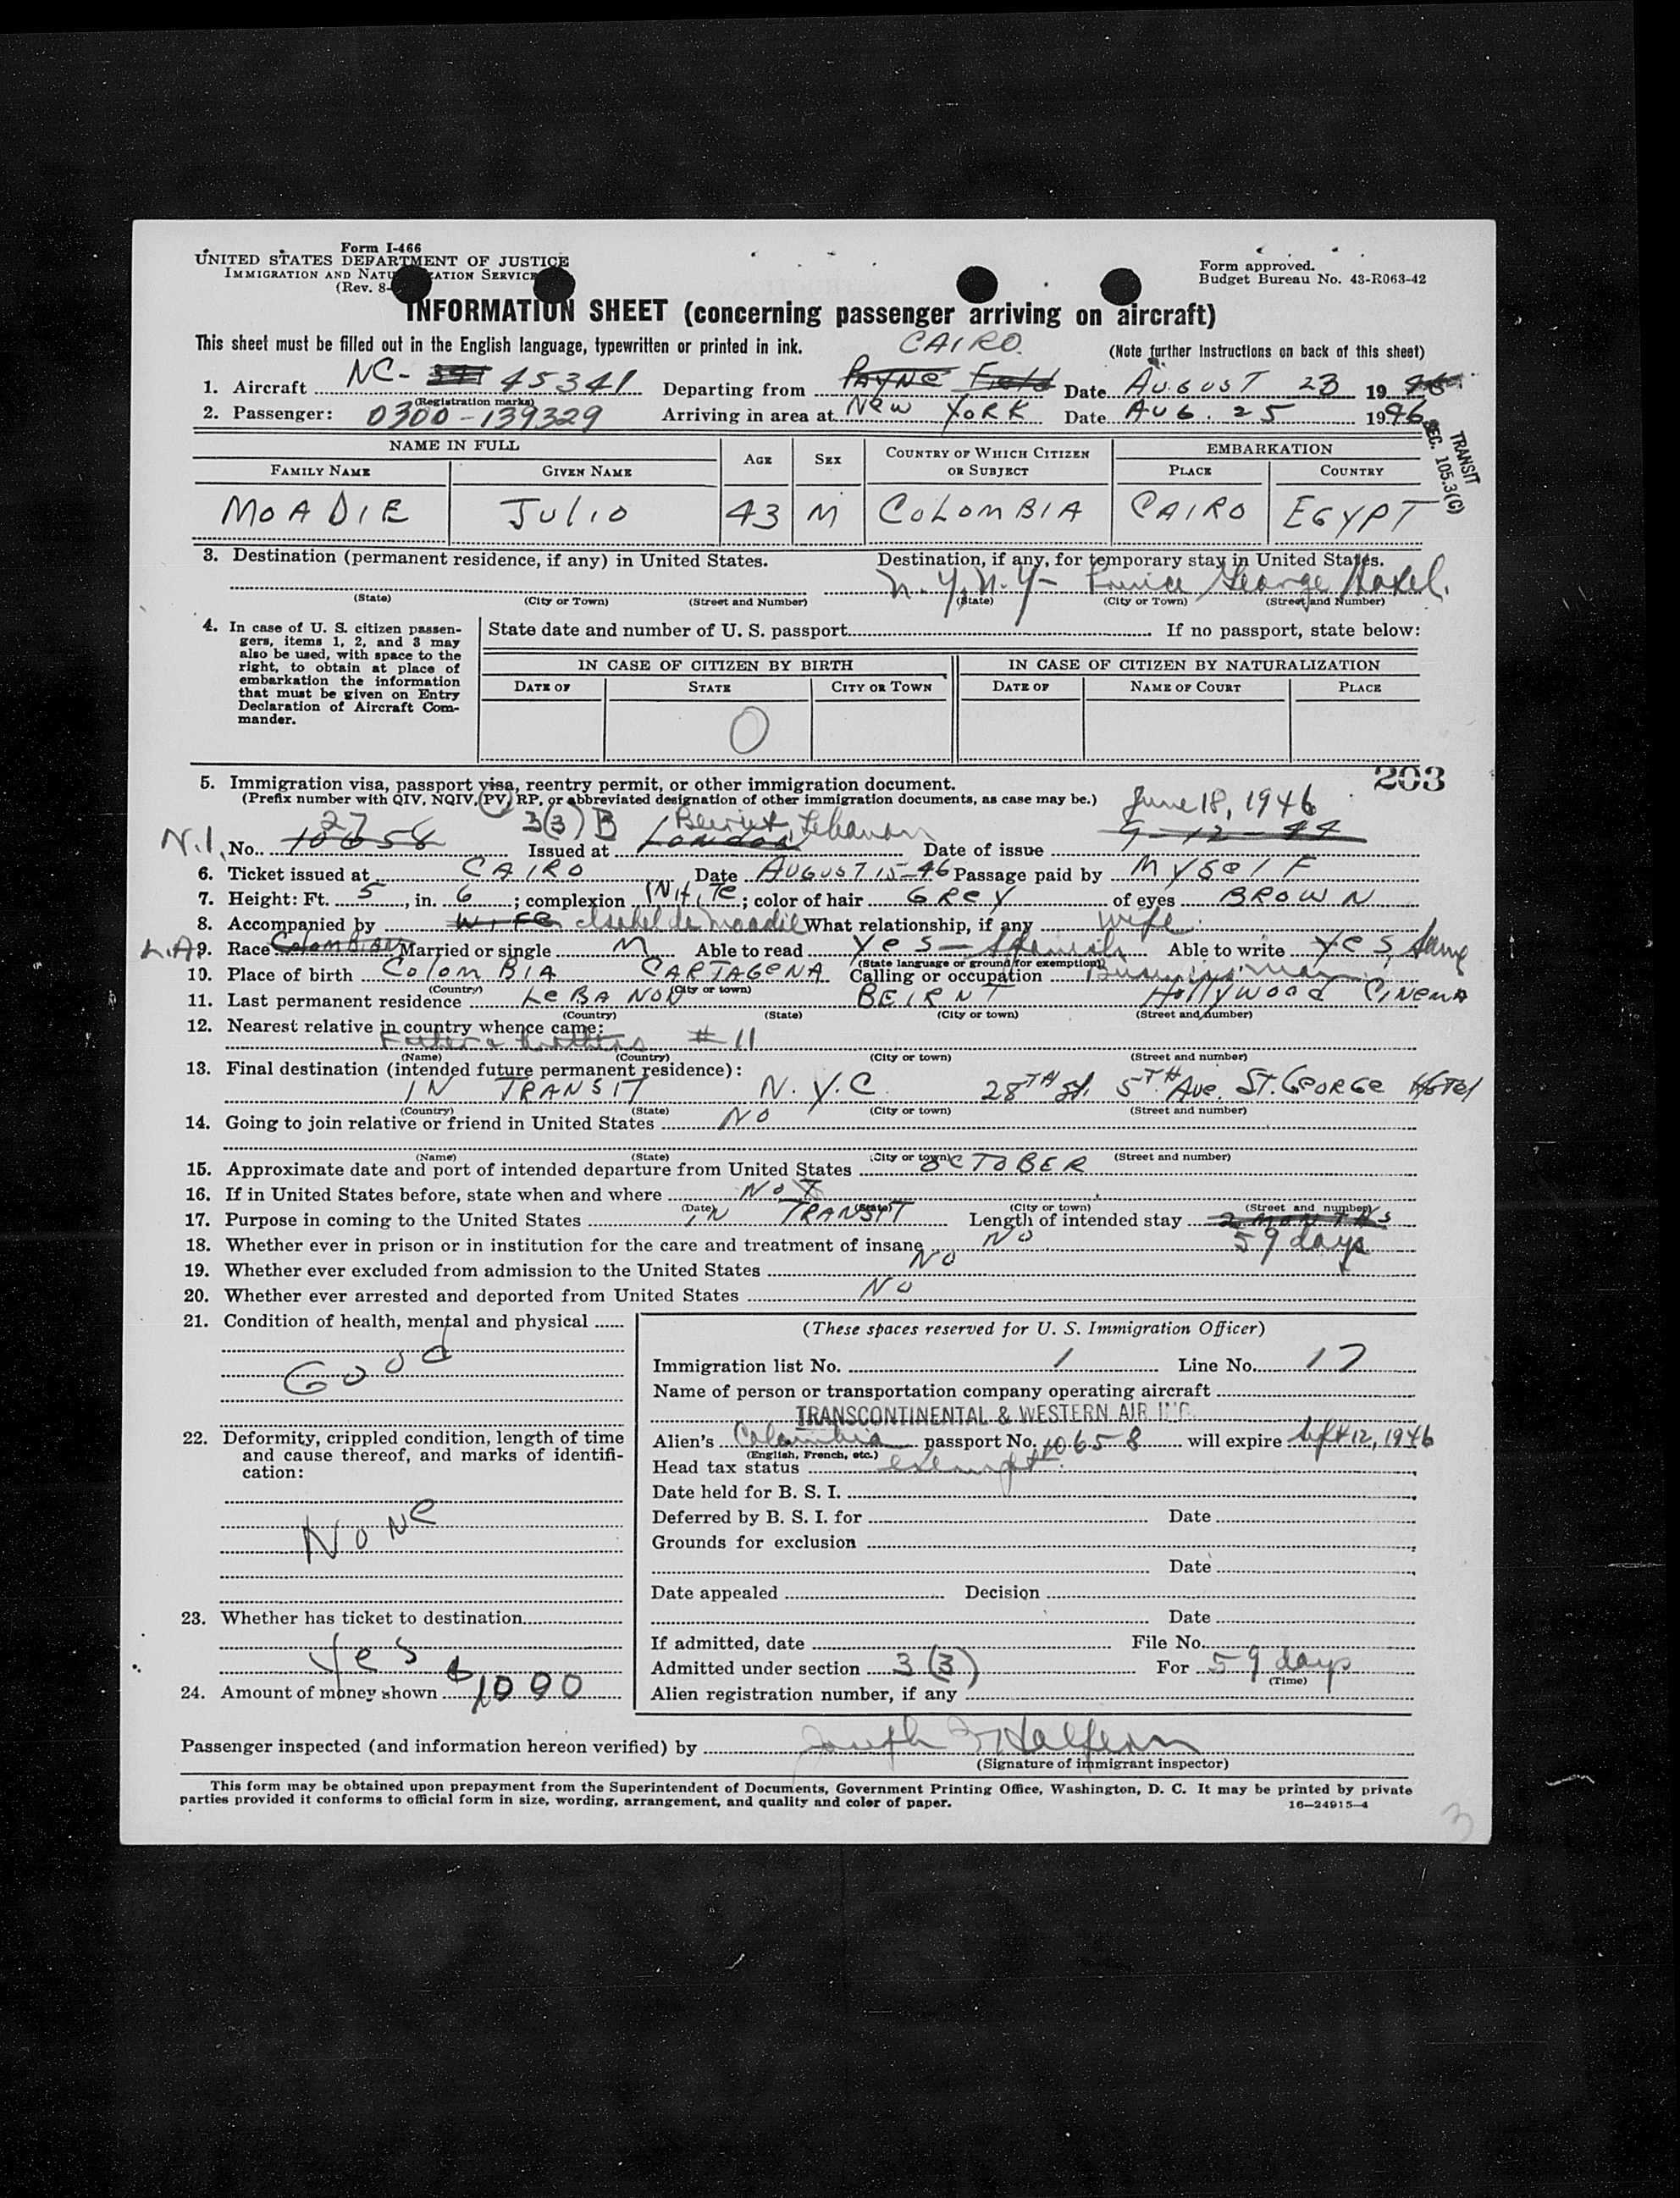 Form I-466
UNITED STATES DEPARTMENT OF JUSTICE
IMMIGRATION AND NATU ATION SERVICE
(Rev. 8-
Form approved.
Budget Bureau No. 43-R063-42
INFORMATION SHEET (concerning passenger arriving on aircraft)
This sheet must be filled out in the English language, typewritten or printed in ink.
CAIRO.
(Note further instructions on back of this sheet)
1. Aircraft NC- 45341 Departing from PAYNE Field Date AUGUST 23 1946
(Registration marks)
2. Passenger: 0300-139329 Arriving in area at NEW YORK Date AUG. 25 1946
TRANSIT
SEC. 105.3(C)
NAME IN FULL
FAMILY NAME GIVEN NAME AGE SEX COUNTRY OF WHICH CITIZEN OR SUBJECT EMBARKATION PLACE COUNTRY
MOADIE JULIO 43 M COLOMBIA CAIRO EGYPT
3. Destination (permanent residence, if any) in United States. Destination, if any, for temporary stay in United States.
N.Y, N.Y- Prince George Hotel.
(State) (City or Town) (Street and Number) (State) (City or Town) (Street and Number)
4. In case of U. S. citizen passen-
gers, items 1, 2, and 3 may
also be used, with space to the
right, to obtain at place of
embarkation the information
that must be given on Entry
Declaration of Aircraft Com-
mander.
State date and number of U. S. passport If no passport, state below:
IN CASE OF CITIZEN BY BIRTH IN CASE OF CITIZEN BY NATURALIZATION
DATE OF STATE CITY OR TOWN DATE OF NAME OF COURT PLACE
0
203
5. Immigration visa, passport visa, reentry permit, or other immigration document.
(Prefix number with QIV, NQIV, PV, RP, or abbreviated designation of other immigration documents, as case may be.)
June 18, 1946
27 3(3) B Beirut, Lebanon
N.I. No. 10658 Issued at LONDON Date of issue 9-12-44
6. Ticket issued at CAIRO Date AUGUST 15-46 Passage paid by MYSELF
7. Height: Ft. 5, in. 6; complexion WHITE; color of hair GREY of eyes BROWN
8. Accompanied by WIFE Isabel de Moadie What relationship, if any wife
L.A. 9. Race Colombian Married or single M Able to read YES - Spanish Able to write YES, Same
(State language or ground for exemption)
10. Place of birth COLOMBIA CARTAGENA Calling or occupation Business man
(Country) (City or town)
11. Last permanent residence LEBANON BEIRNT HOLLYWOOD CINEMA
(Country) (State) (City or town) (Street and number)
12. Nearest relative in country whence came:
# 11
(Name) (Country) (City or town) (Street and number)
13. Final destination (intended future permanent residence):
IN TRANSIT N.Y.C. 28TH St. 5TH Ave. ST. GEORGE HOTEL
(Country) (State) (City or town) (Street and number)
14. Going to join relative or friend in United States NO
(Name) (State) (City or town) (Street and number)
15. Approximate date and port of intended departure from United States OCTOBER
16. If in United States before, state when and where NOT
(Date) (State) (City or town) (Street and number)
17. Purpose in coming to the United States IN TRANSIT Length of intended stay 2 MONTHS
59 days
18. Whether ever in prison or in institution for the care and treatment of insane NO
19. Whether ever excluded from admission to the United States NO
20. Whether ever arrested and deported from United States NO
21. Condition of health, mental and physical
Good
22. Deformity, crippled condition, length of time
and cause thereof, and marks of identifi-
cation:
NONE
23. Whether has ticket to destination
Yes
24. Amount of money shown $1000
(These spaces reserved for U. S. Immigration Officer)
Immigration list No. 1 Line No. 17
Name of person or transportation company operating aircraft
TRANSCONTINENTAL & WESTERN AIR INC.
Alien's Colombia passport No. 10658 will expire Sept 12, 1946
(English, French, etc.)
Head tax status exempt
Date held for B. S. I.
Deferred by B. S. I. for Date
Grounds for exclusion
Date
Date appealed Decision
Date
If admitted, date File No.
Admitted under section 3 (3) For 59 days
(Time)
Alien registration number, if any
Passenger inspected (and information hereon verified) by Joseph Halfern
(Signature of immigrant inspector)
This form may be obtained upon prepayment from the Superintendent of Documents, Government Printing Office, Washington, D. C. It may be printed by private
parties provided it conforms to official form in size, wording, arrangement, and quality and color of paper.
16—24915-4
3